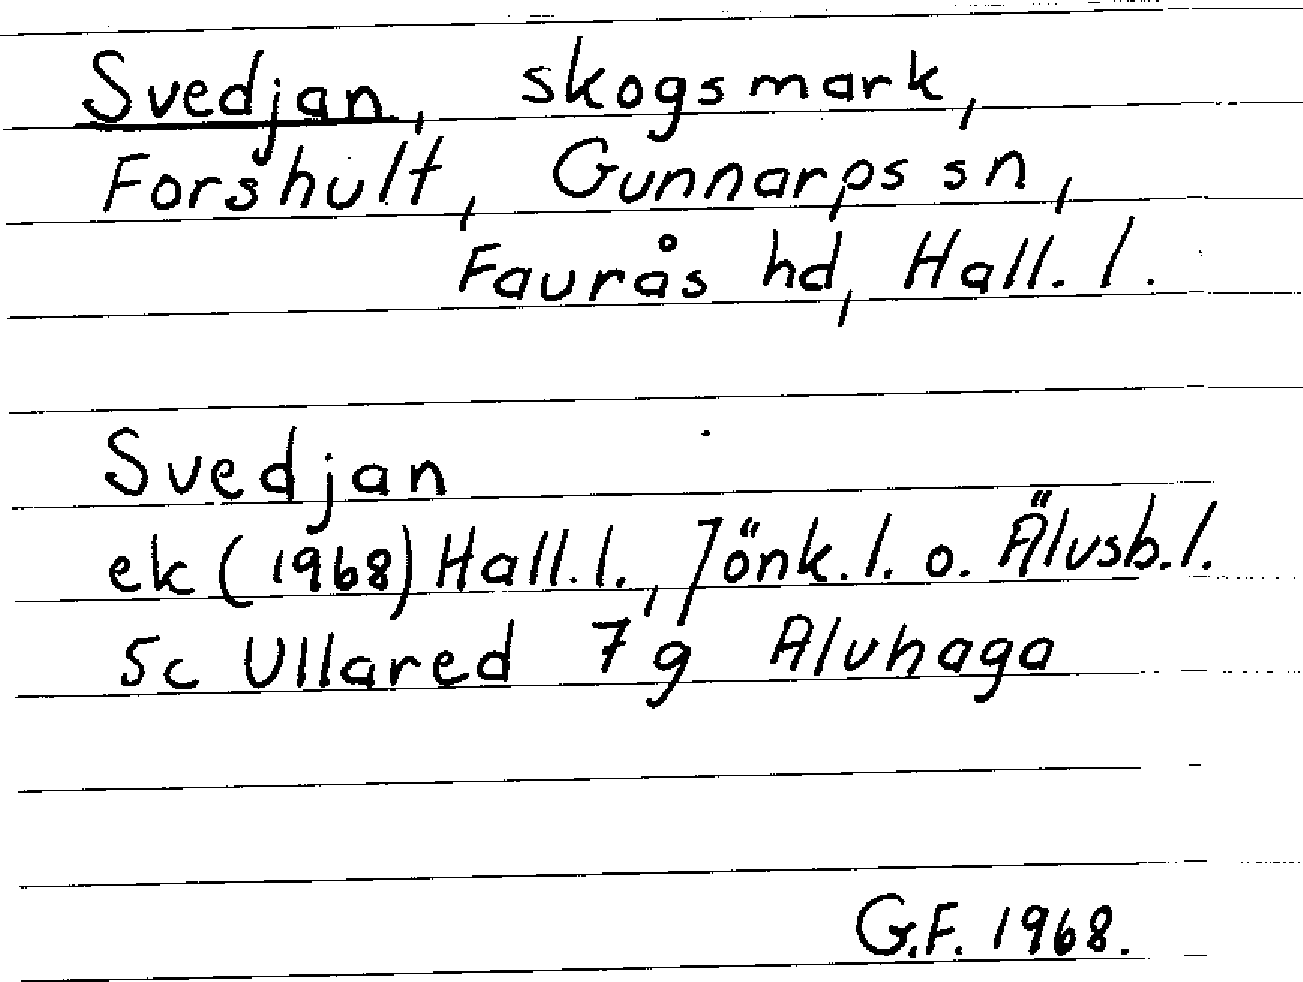 Svedjan, skogsmark,
Forshult, Gunnarps sn,
Faurås hd, Hall. l.
Svedjan
ek (1968) Hall. l., Jönk. l. o. Älvsb. l.
5c Ullared 7g Älvhaga
G.F. 1968.